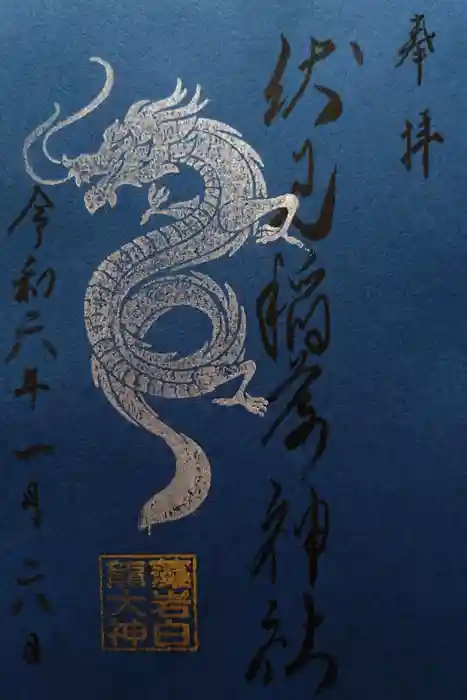 奉拝
伏見稲荷神社
令和六年一月六日
岩白
龍大神